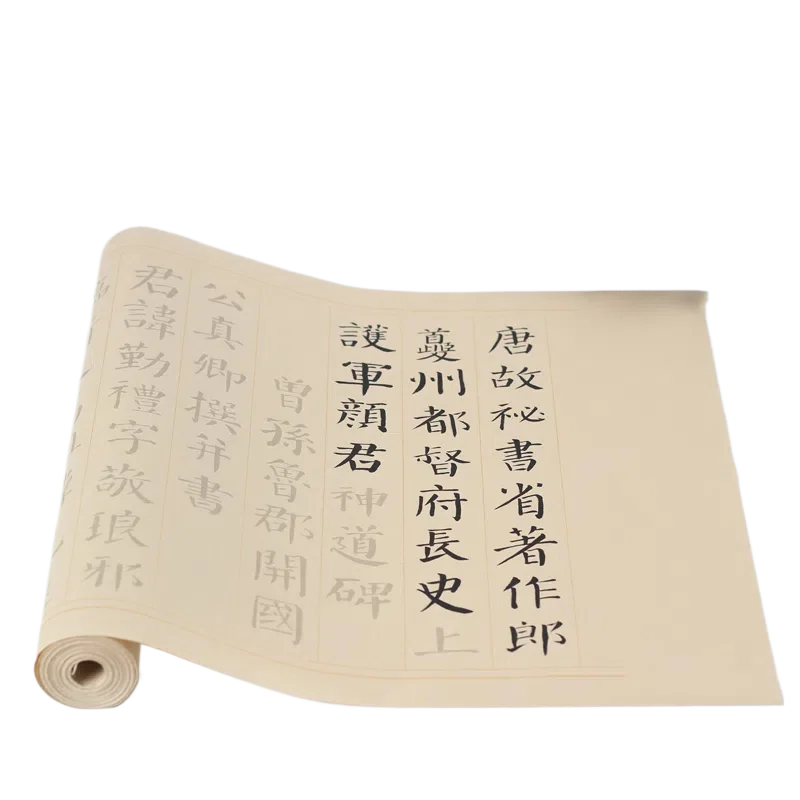 唐故祕書省著作郎
夔州都督府長史上
護軍顏君神道碑
曾孫魯郡開國
公真卿撰并書
君諱勤禮字敬琅邪